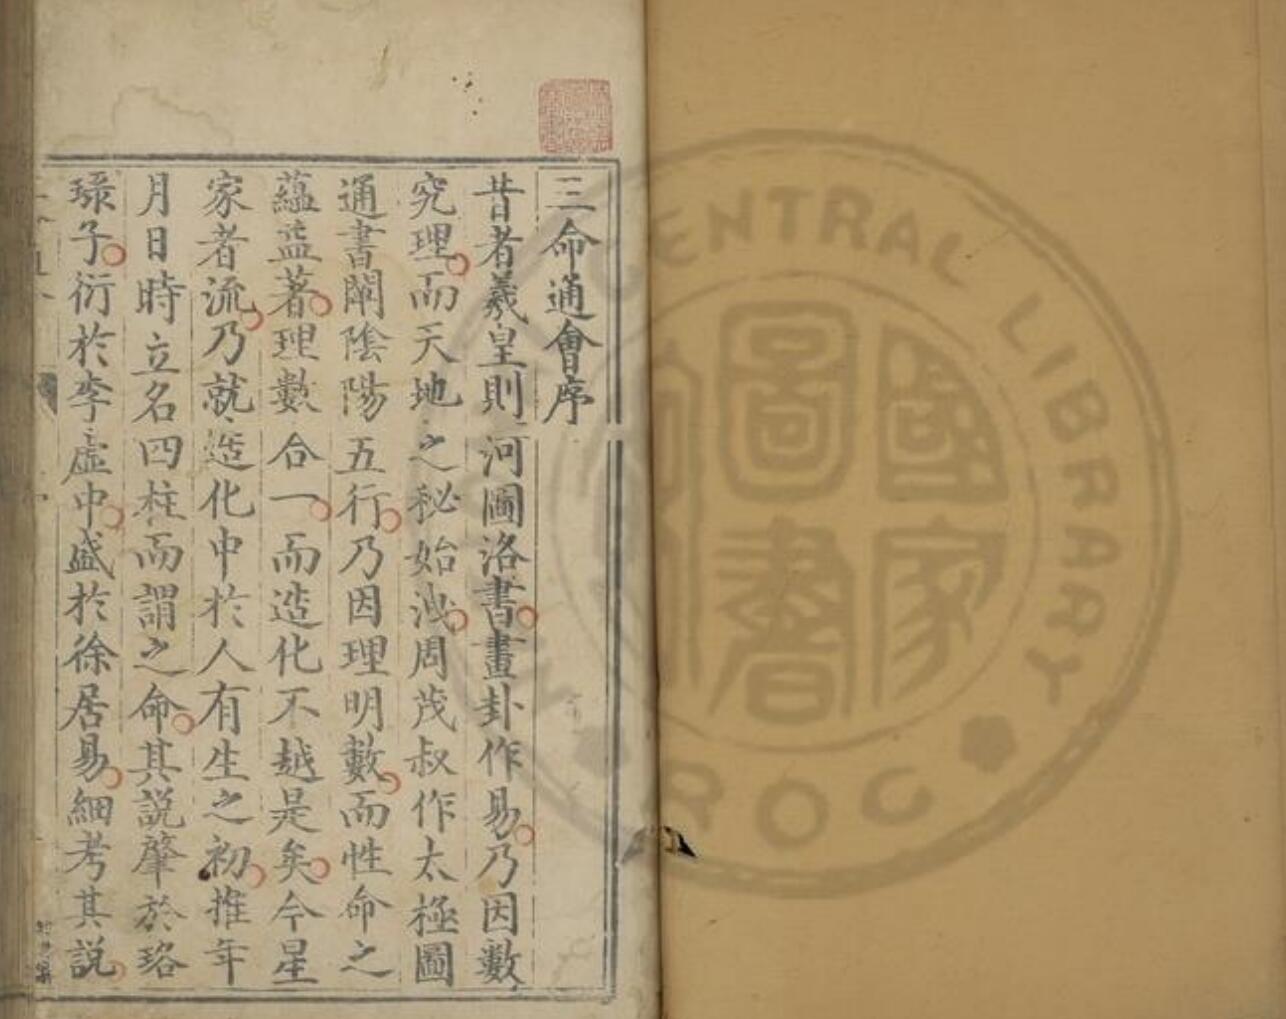 三命通會序
昔者羲皇則河圖洛書畫卦作易乃因數
究理而天地之秘始洩周茂叔作太極圖
通書闡陰陽五行乃因理明數而性命之
蘊益著理數合一而造化不越是矣今星
家者流乃就造化中於人有生之初推年
月日時立名四柱而謂之命其說肇於珞
琭子衍於李虛中盛於徐居易細考其說
CENTRAL LIBRARY
ROC
國家
圖書